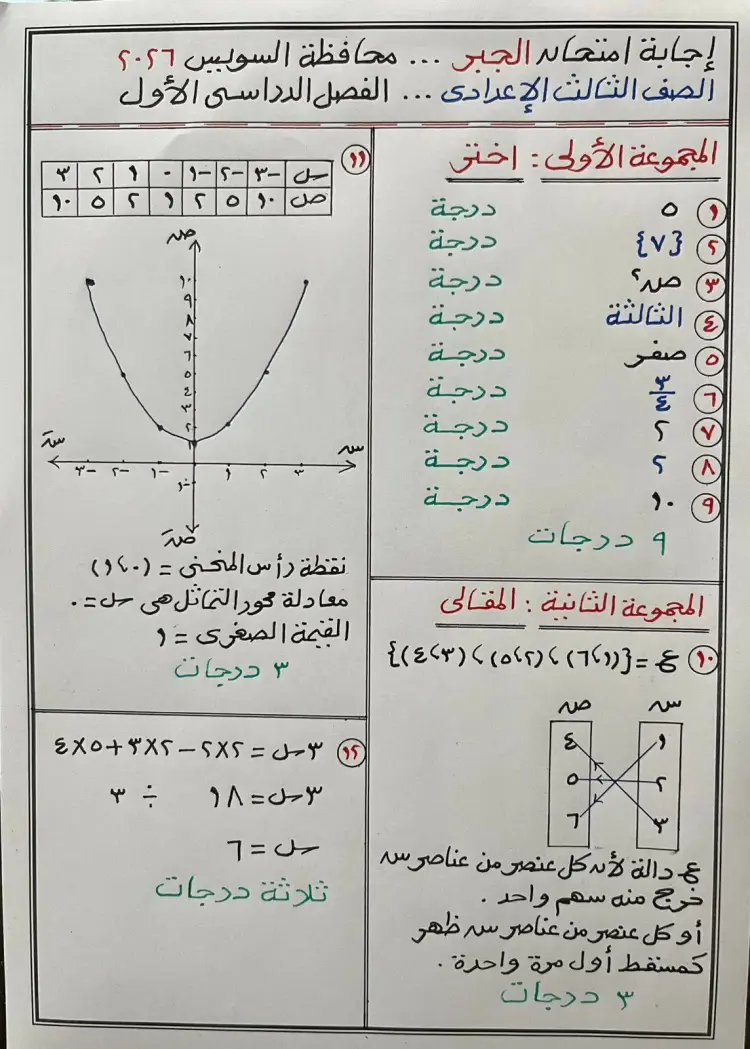 إجابة امتحان الجبر ... محافظة السويس ٢٠٢٦
الصف الثالث الإعدادى ... الفصل الدراسى الأول
المجموعة الأولى : اختر
١ ٥ درجة
٢ {٧} درجة
٣ ص٢ درجة
٤ الثالثة درجة
٥ صفر درجة
٦ ٣/٤ درجة
٧ ٢ درجة
٨ ٢ درجة
٩ ١٠ درجة
٩ درجات
المجموعة الثانية : المقالى
١٠ ع = {(١،٦)،(٢،٥)،(٣،٤)}
س ص
١ ٤
٢ ٥
٣ ٦
ع دالة لأن كل عنصر من عناصر س
خرج منه سهم واحد .
أو كل عنصر من عناصر س ظهر
كمسقط أول مرة واحدة .
٣ درجات
١١
س -٣ -٢ -١ ٠ ١ ٢ ٣
ص ١٠ ٥ ٢ ١ ٢ ٥ ١٠
ص
١٠
٩
٨
٧
٦
٥
٤
٣
٢
١
سَ س
-٣ -٢ -١ ١ ٢ ٣
-١
صَ
نقطة رأس المنحنى = (٠،١)
معادلة محور التماثل هى س = ٠
القيمة الصغرى = ١
٣ درجات
١٢ ٣س = ٢×٢ - ٢×٣ + ٥×٤
٣س = ١٨ ÷ ٣
س = ٦
ثلاثة درجات